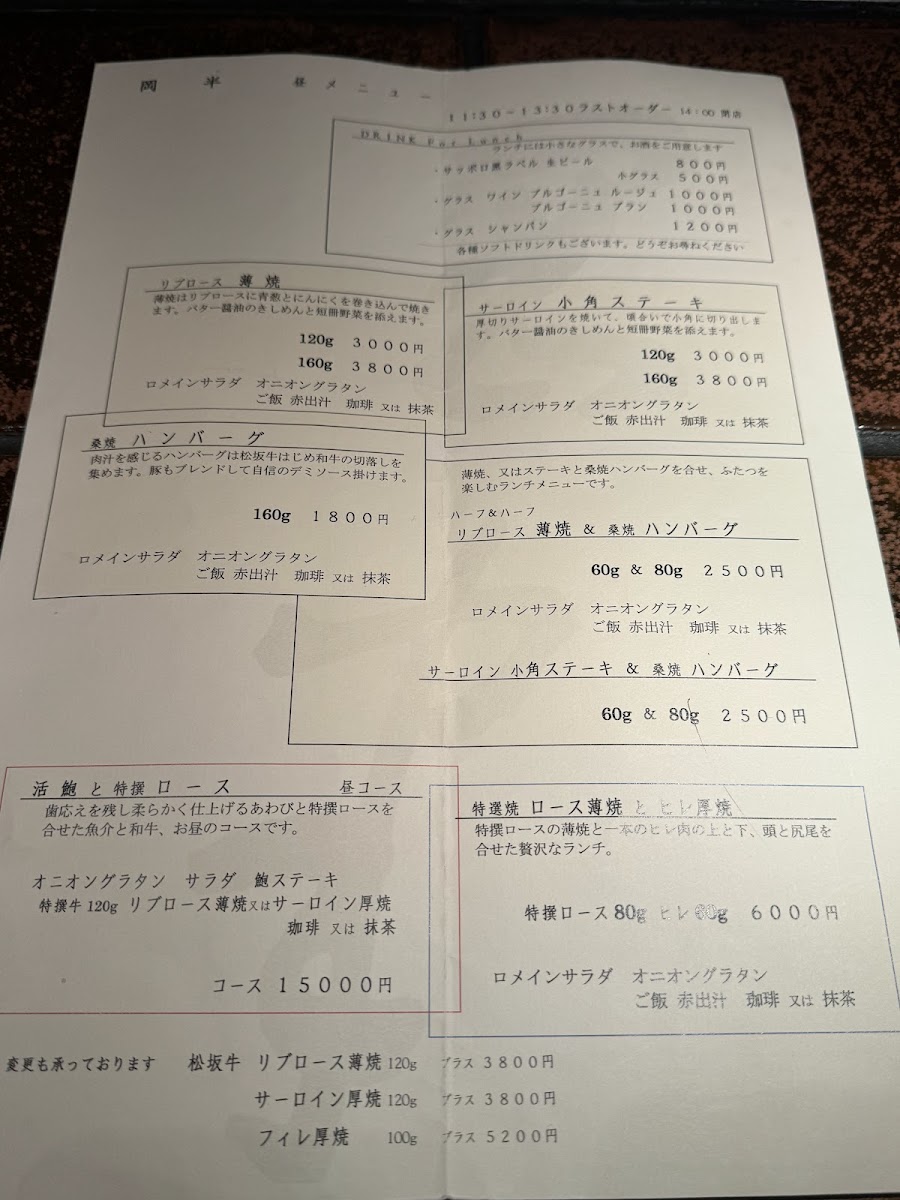 岡半 昼メニュー
11:30－13:30ラストオーダー 14:00 閉店
DRINK For Lunch
ランチには小さなグラスで、お酒をご用意します
・サッポロ黒ラベル 生ビール 800円
小グラス 500円
・グラス ワイン ブルゴーニュ ルージュ 1000円
ブルゴーニュ ブラン 1000円
・グラス シャンパン 1200円
各種ソフトドリンクもございます。どうぞお尋ねください
リブロース 薄焼
薄焼はリブロースに青葱とにんにくを巻き込んで焼き
ます。バター醤油のきしめんと短冊野菜を添えます。
120g 3000円
160g 3800円
ロメインサラダ オニオングラタン
ご飯 赤出汁 珈琲 又は 抹茶
サーロイン 小角ステーキ
厚切りサーロインを焼いて、頃合いで小角に切り出しま
す。バター醤油のきしめんと短冊野菜を添えます。
120g 3000円
160g 3800円
ロメインサラダ オニオングラタン
ご飯 赤出汁 珈琲 又は 抹茶
桑焼 ハンバーグ
肉汁を感じるハンバーグは松坂牛はじめ和牛の切落しを
集めます。豚もブレンドして自信のデミソース掛けます。
160g 1800円
ロメインサラダ オニオングラタン
ご飯 赤出汁 珈琲 又は 抹茶
薄焼、又はステーキと桑焼ハンバーグを合せ、ふたつを
楽しむランチメニューです。
ハーフ&ハーフ
リブロース 薄焼 & 桑焼 ハンバーグ
60g & 80g 2500円
ロメインサラダ オニオングラタン
ご飯 赤出汁 珈琲 又は 抹茶
サーロイン 小角ステーキ & 桑焼 ハンバーグ
60g & 80g 2500円
活鮑と特撰ロース 昼コース
歯応えを残し柔らかく仕上げるあわびと特撰ロースを
合せた魚介と和牛、お昼のコースです。
オニオングラタン サラダ 鮑ステーキ
特撰牛120g リブロース薄焼又はサーロイン厚焼
珈琲 又は 抹茶
コース 15000円
特選焼 ロース薄焼 と ヒレ厚焼
特撰ロースの薄焼と一本のヒレ肉の上と下、頭と尻尾を
合せた贅沢なランチ。
特撰ロース80g ヒレ60g 6000円
ロメインサラダ オニオングラタン
ご飯 赤出汁 珈琲 又は 抹茶
変更も承っております 松坂牛 リブロース薄焼 120g プラス 3800円
サーロイン厚焼 120g プラス 3800円
フィレ厚焼 100g プラス 5200円